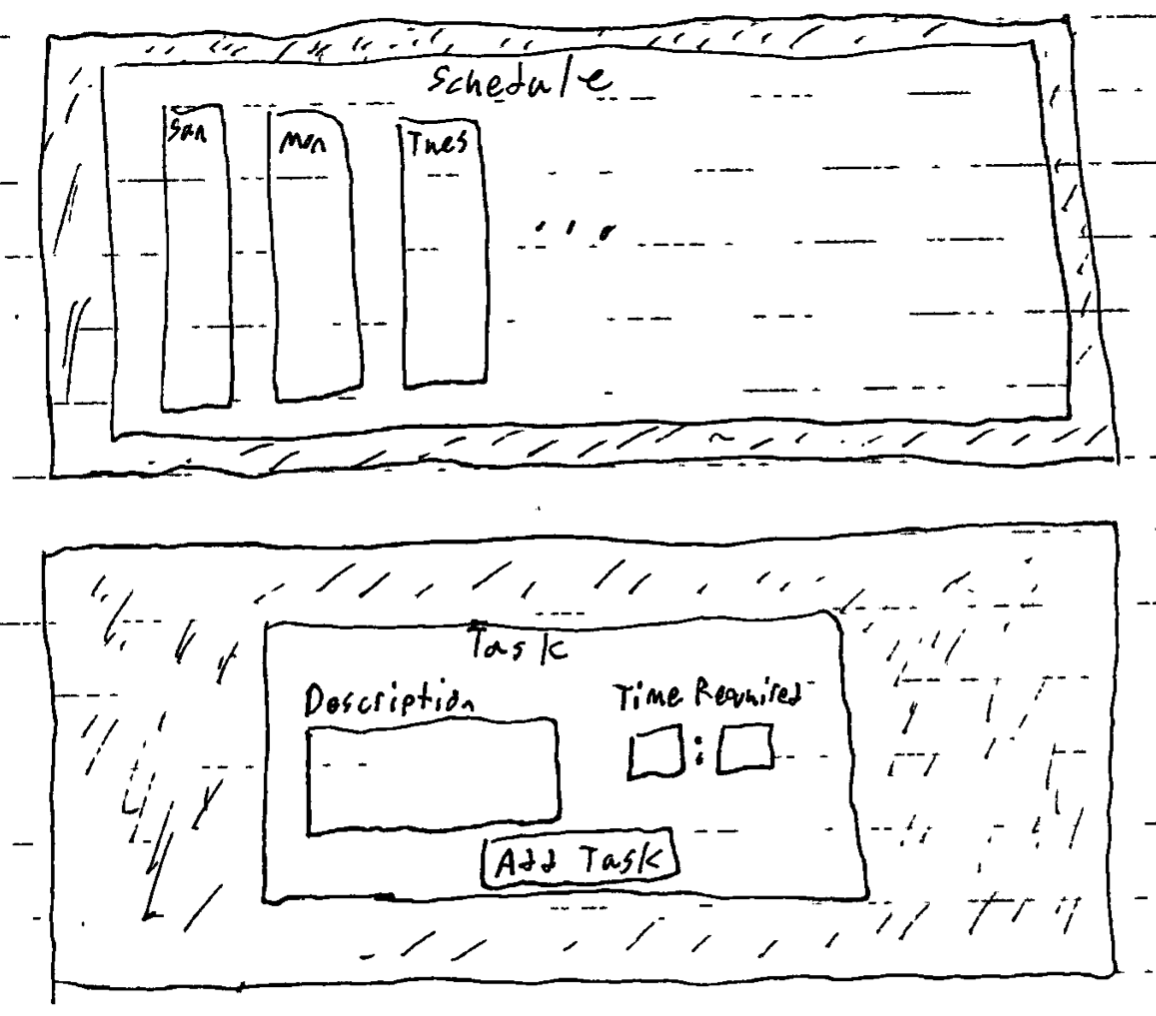 Schedule
Sun Mon Tues ...
Task
Description Time Required
:
Add Task